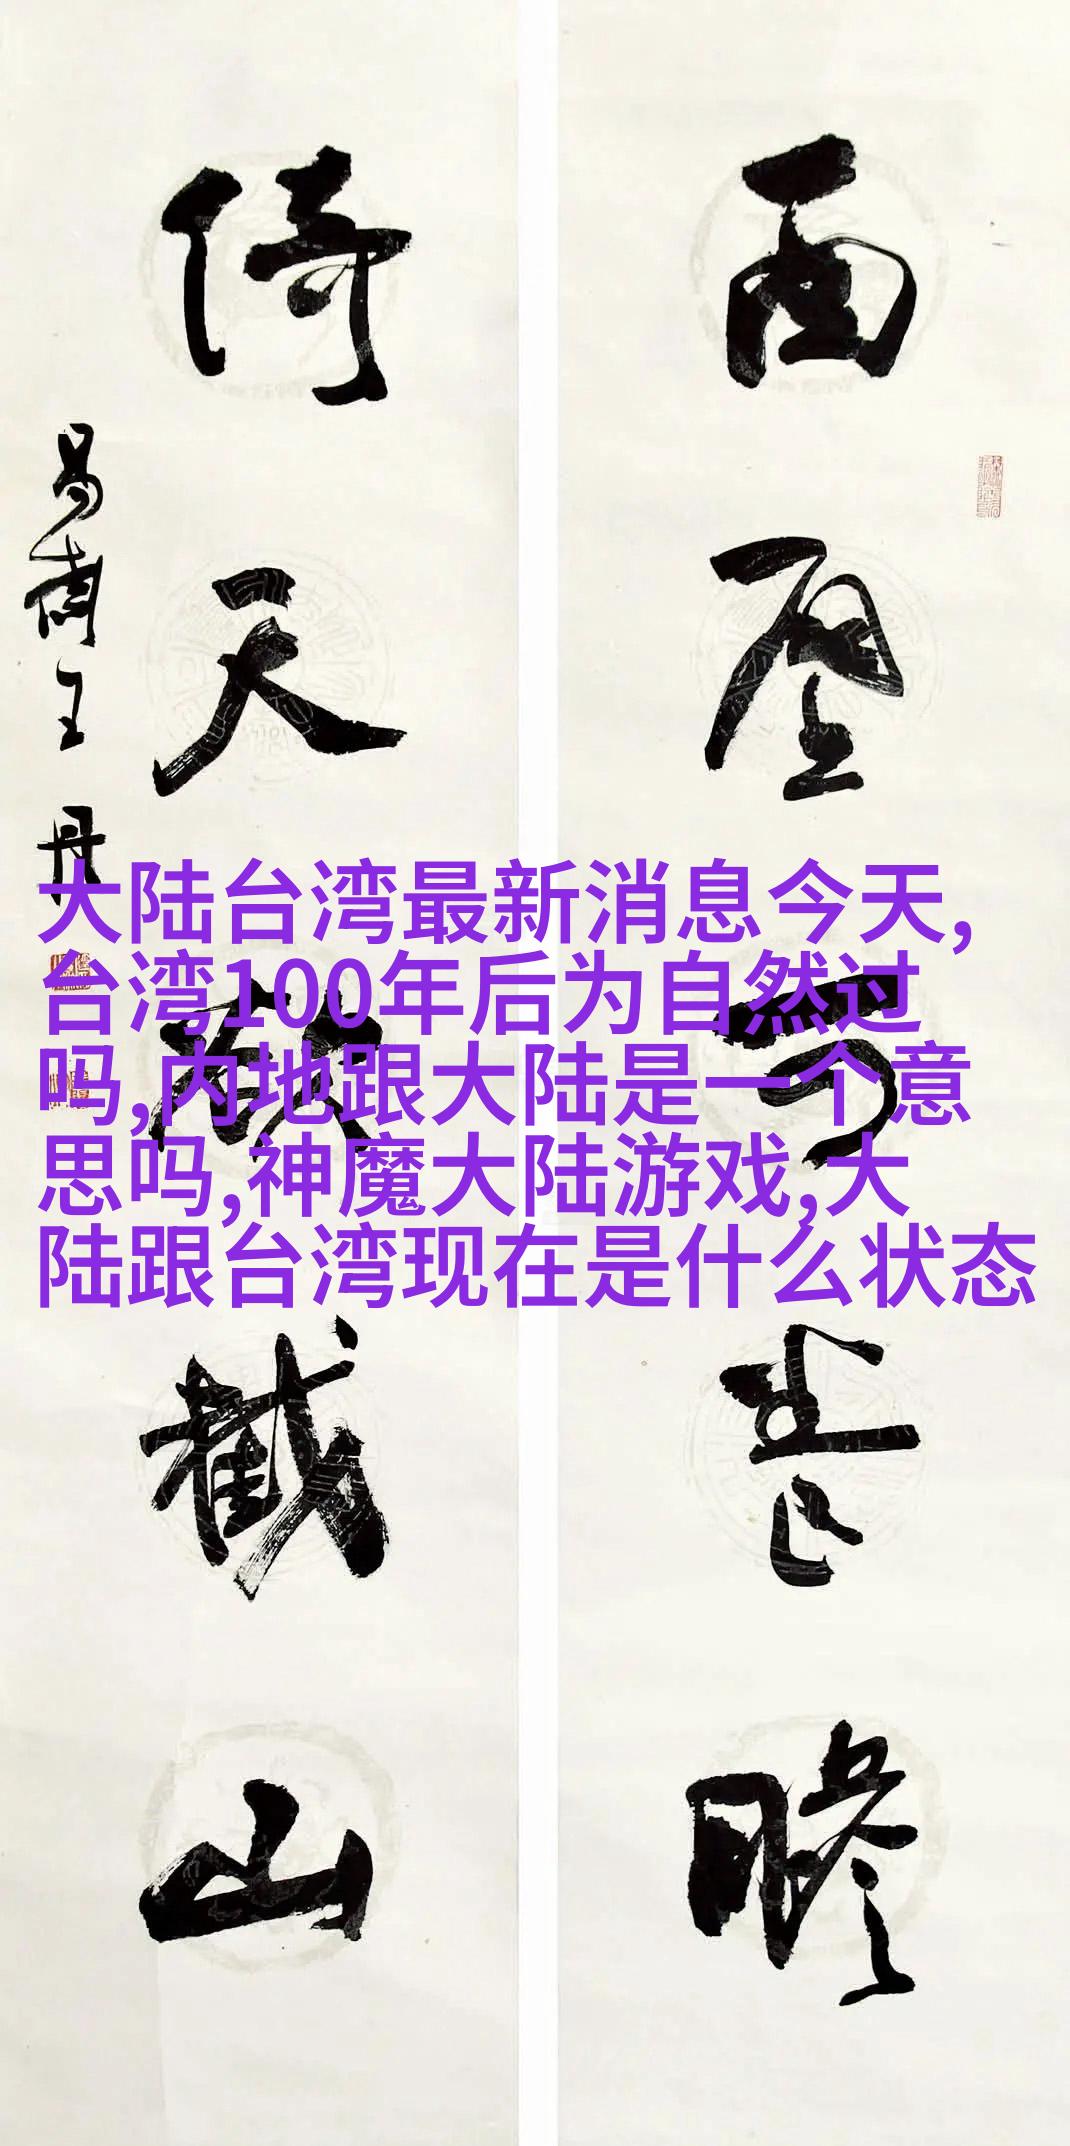 大陆台湾最新消息今天,
台湾100年后为自然过
吗,内地跟大陆是一个意
思吗,神魔大陆游戏,大
陆跟台湾现在是什么状态
面壁可吞瞻
倚天欲截山
易斋王丹